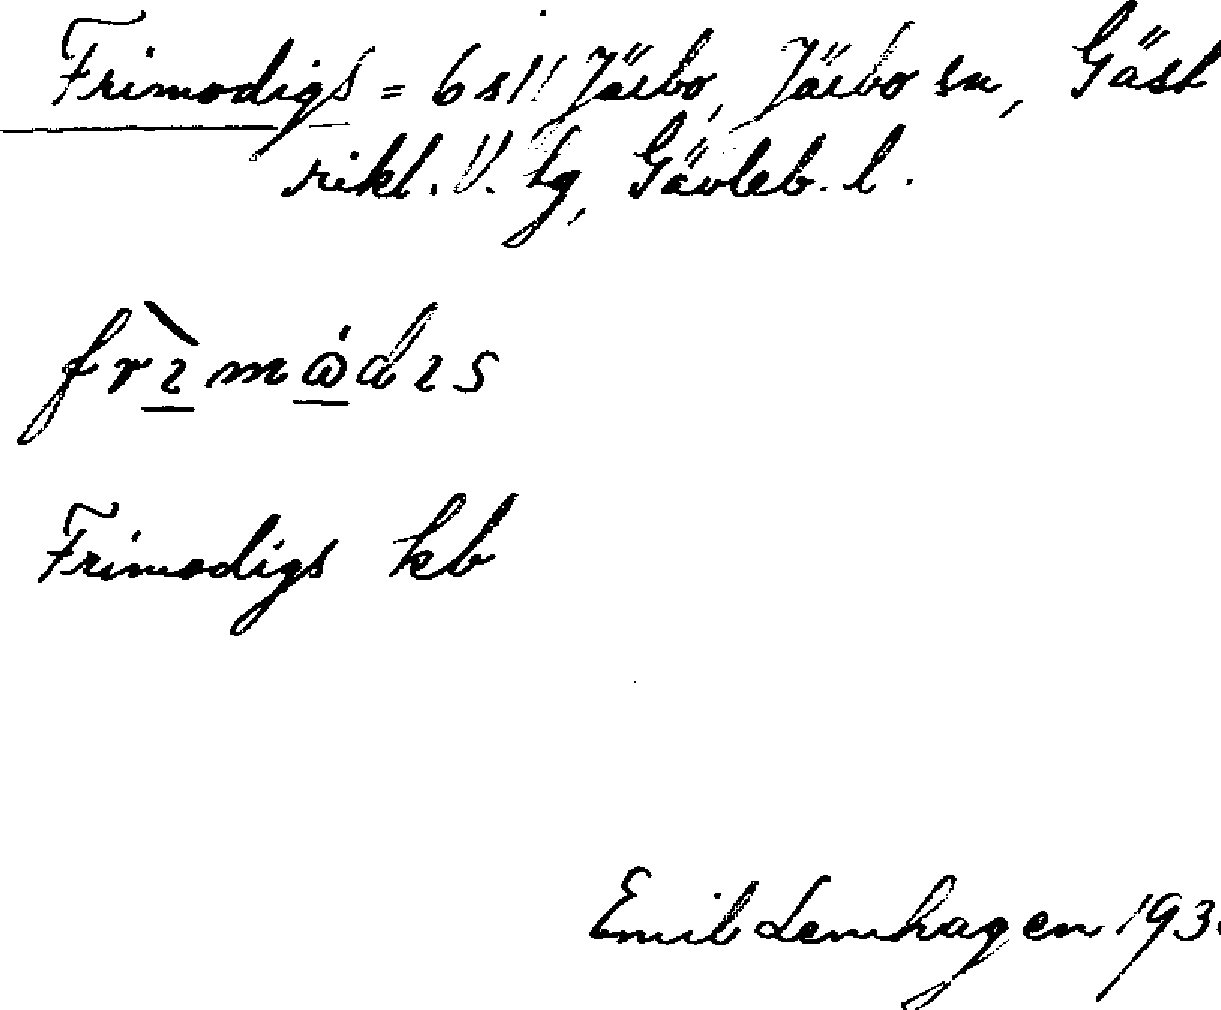 Frimodigs = 6 s11 Järbo, Järbo sn, Gäst
rikl. V. Tg, Gävleb. l.
frìmω̇dıs
Frimodigs kb
Emil Lemhagen 193